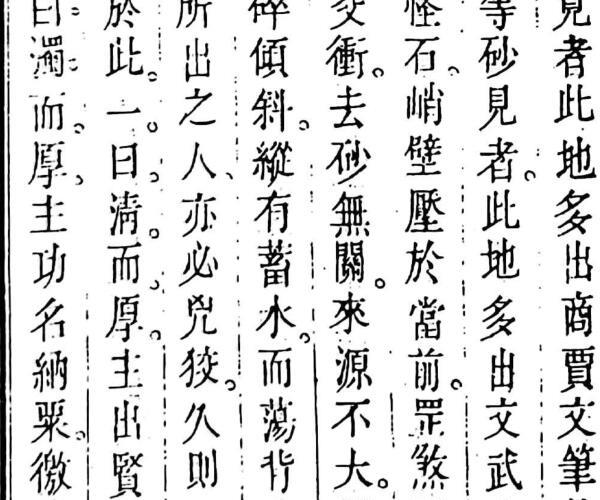 見者此地多出商賈文筆
等砂見者。此地多出文武
怪石。峭壁壓於當前。罡煞
交衝。去砂無關。來源不大。
碎傾斜。縱有蓄水。而蕩背
所出之人、亦必兇狡。久則
於此。一曰清而厚。主出賢
曰濁而厚。主功名納粟。徵